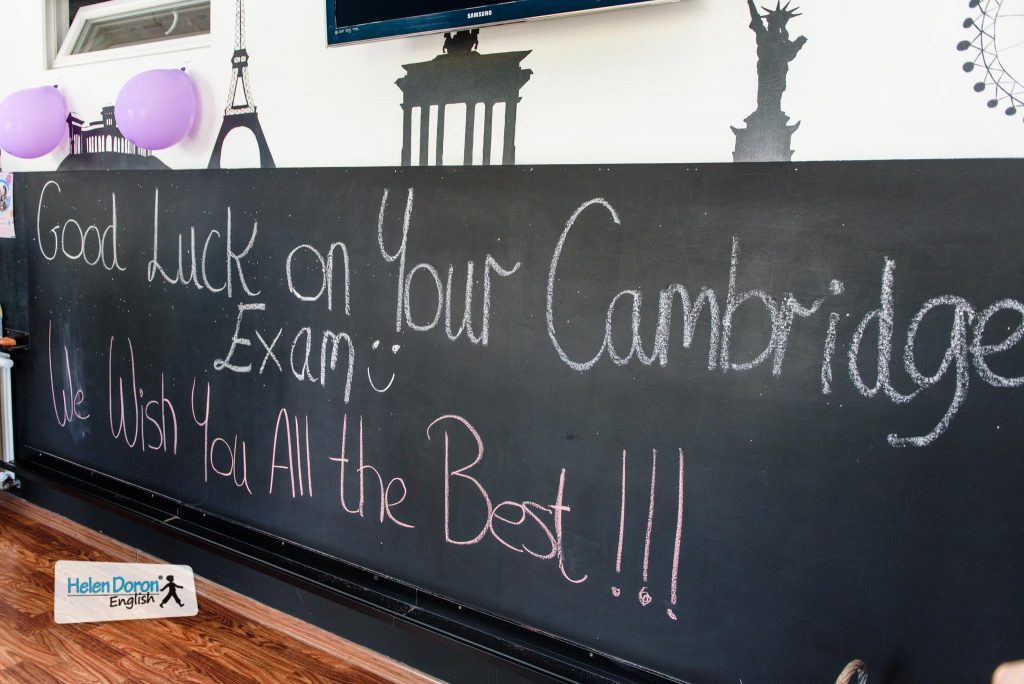 SAMSUNG
Good Luck on Your Cambridge
Exam
We Wish You All the Best!!!
Helen Doron®
English